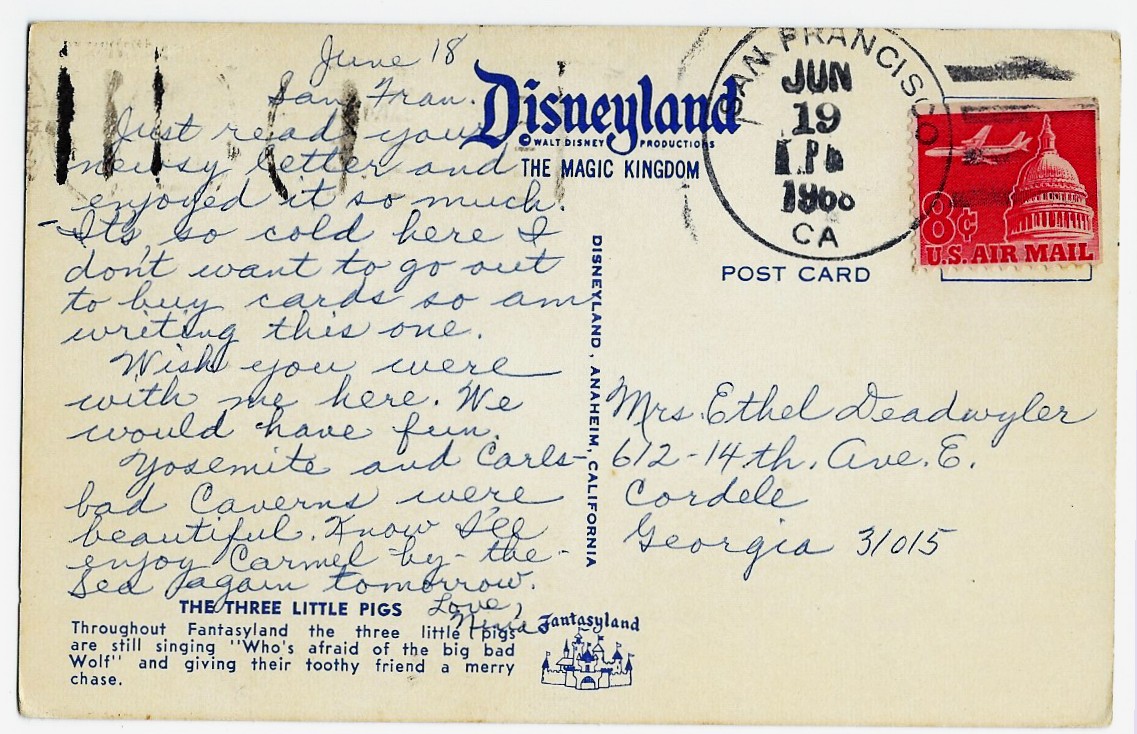 June 18
San Fran.
Just read your
newsy letter and
enjoyed it so much.
- It's so cold here I
don't want to go out
to buy cards so am
writing this one.
Wish you were
with me here. We
would have fun.
Yosemite and Carls-
bad Caverns were
beautiful. Know I'll
enjoy Carmel-by-the-
Sea again tomorrow.
Love,
THE THREE LITTLE PIGS
Throughout Fantasyland the three little pigs
are still singing "Who's afraid of the big bad
Wolf" and giving their toothy friend a merry
chase.
Fantasyland
Disneyland
© WALT DISNEY PRODUCTIONS
THE MAGIC KINGDOM
DISNEYLAND, ANAHEIM, CALIFORNIA
SAN FRANCISCO
JUN
19
1968
CA
8¢
U.S. AIR MAIL
POST CARD
Mrs. Ethel Deadwyler
612-14th. Ave. E.
Cordele
Georgia 31015